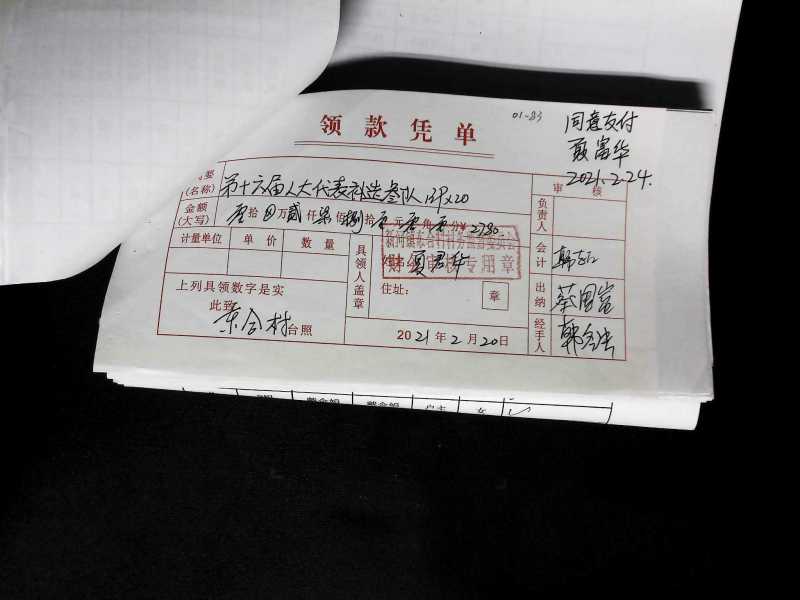 领款凭单
01-83
同意支付
聂富华
2021.2.24.
要
(名称)
第十六届人大代表补选参队 139×20
审核
金额
(大写)
拾 万贰仟柒佰捌拾 元 角 分¥2780
负责人
计量单位 单价 数量
具领人盖章
夏君华
财 专用章
住址:
章
会计
出纳
经手人
上列具领数字是实
此致
东合村台照
2021年2月20日